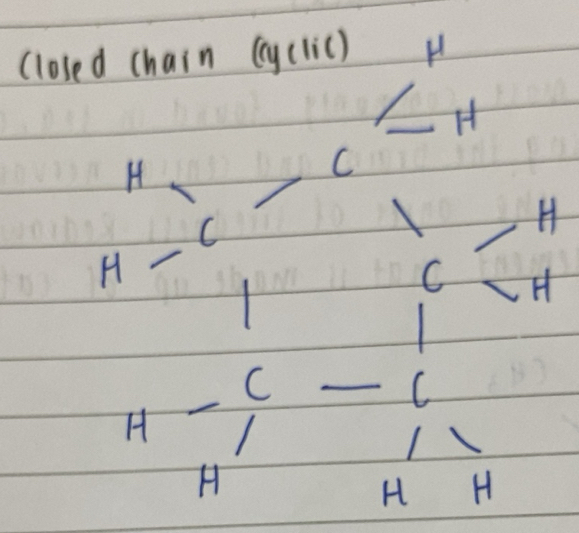 Closed Chain (Cyclic)
H
H
C
H
C
H
H
C
H
C
C
H
H
H
H